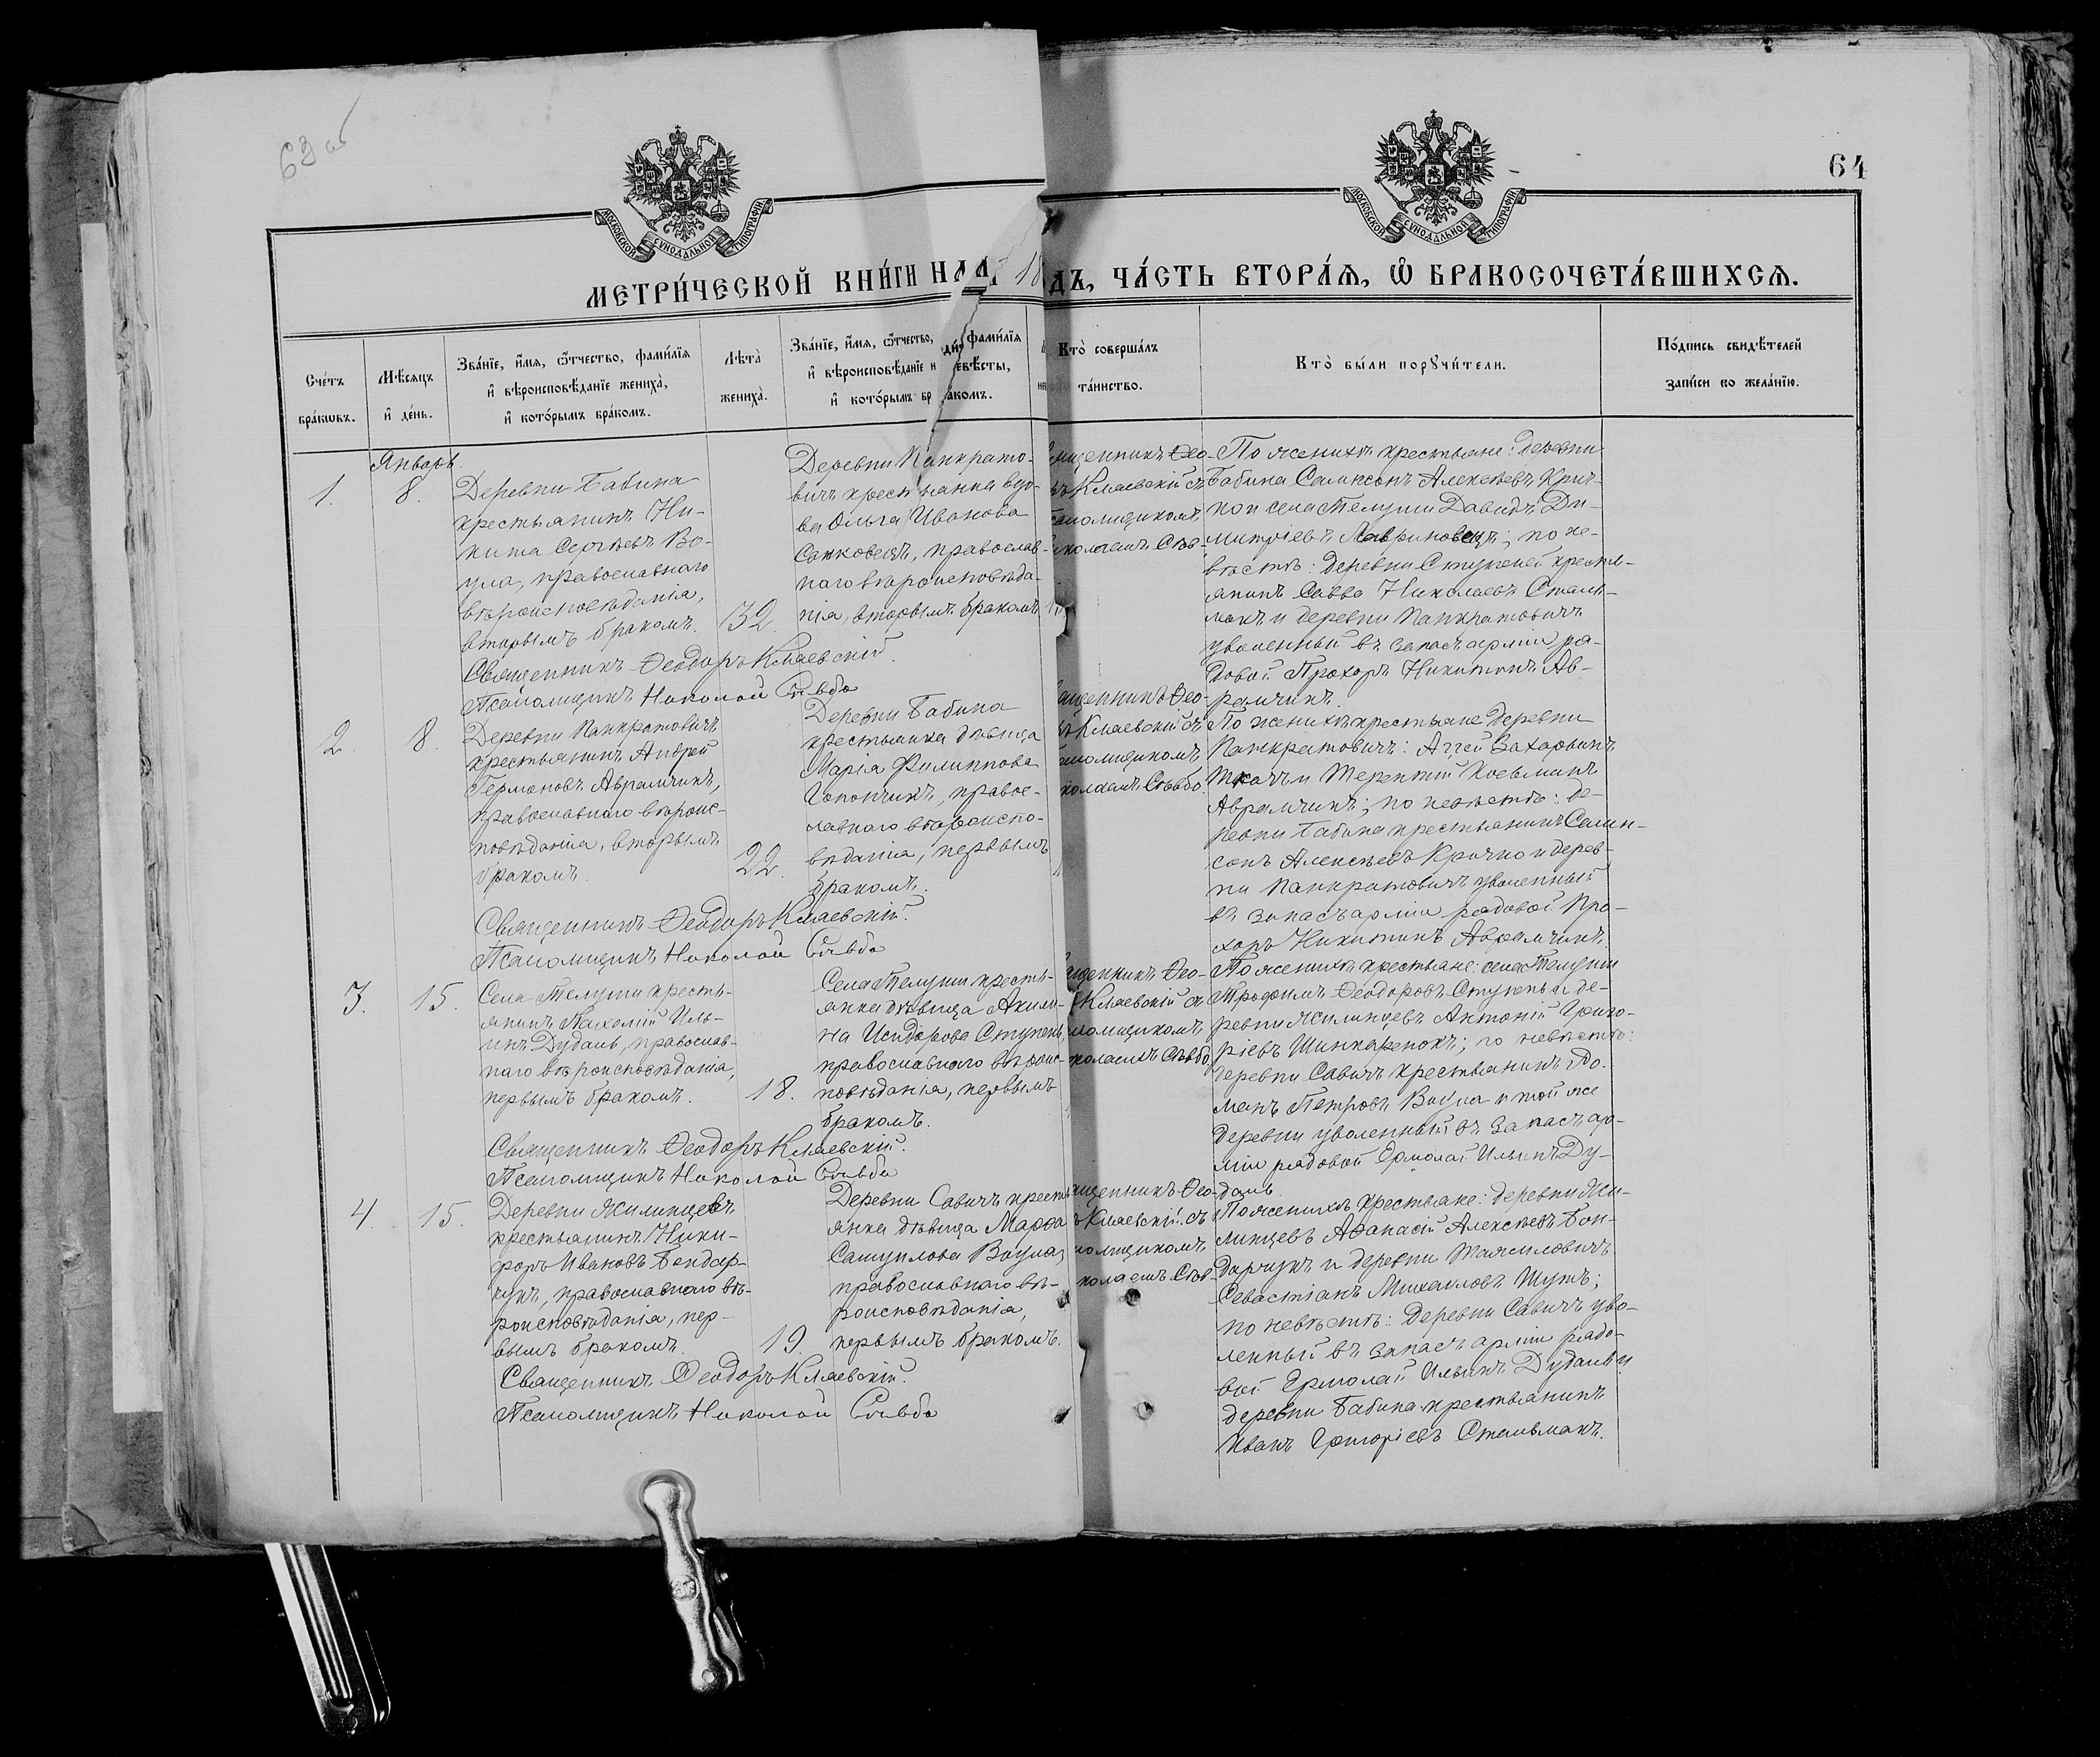 64
МОСКОВСКОЙ СѴНОДАЛЬНОЙ ТИПОГРАФІИ
МОСКОВСКОЙ СѴНОДАЛЬНОЙ ТИПОГРАФІИ
МЕТРИ́ЧЕСКОЙ КНИ́ГИ НА 18
ДЪ, ЧА́СТЬ ВТОРА́Ѧ, Ѿ БРАКОСОЧЕТА́ВШИХСѦ.
Сче́тъ
бра́кѡвъ.
Мѣ́сяцъ
и҆ де́нь.
Зва́нїе, и҆́мя, ѻ҆́тчество, фами́лїя
и҆ вѣроисповѣ́данїе жениха̀,
и҆ кото́рымъ бра́комъ.
Лѣ́та̀
жениха̀.
Зва́нїе, и҆́мя, ѻ҆́тчество, фами́лїя
и҆ вѣроисповѣ́данїе невѣ́сты,
и҆ кото́рымъ бра́комъ.
Кто̀ соверша́лъ
та́инство.
Кто̀ бы́ли порꙋчи́тели.
По́дпись свидѣ́телей
запи́си по жела́нїю.
Январь
1.
8.
Деревни Бабина
крестьянинъ Ни-
кита Сергѣевъ Во-
ула, православнаго
вѣроисповѣданія,
вторымъ бракомъ.
32.
Деревни Панкрато-
вичъ крестьянка вдо-
ва Ольга Иванова
православ-
наго вѣроисповѣда-
нія, вторымъ бракомъ
Священникъ Ѳеодоръ Кмаевскій.
Псаломщикъ Николай Сѣвбо
Ѳео-
Кмаевскій съ
По женихѣ крестьяне: деревни
Бабина Самсонъ Алексѣевъ Крич-
ко и села Телуши Давидъ Ди-
митріевъ Лавриновецъ; по не-
вѣстѣ: деревни Ступеней кресть-
янинъ Савва Николаевъ Сталь-
махъ и деревни Панкратовичъ
уволенный въ запасъ арміи ря-
довой Прохоръ Никитинъ Ав-
рамчикъ.
2.
8.
Деревни Панкратовичъ
крестьянинъ Андрей
Германовъ Аврамчикъ,
православнаго вѣроис-
повѣданія, вторымъ
бракомъ.
22.
Деревни Бабина
крестьянка дѣвица
Марія Филиппова
Гопончикъ, правос-
лавнаго вѣроиспо-
вѣданія, первымъ
бракомъ.
Священникъ Ѳеодоръ Кмаевскій.
Псаломщикъ Николай Сѣвбо
Ѳео-
Кмаевскій съ
Сѣвбо.
По женихѣ крестьяне деревни
Панкратовичъ: Аггей Захарьинъ
Ткачъ и Терентій Косьминъ
Аврамчикъ; по невѣстѣ: де-
ревни Бабина крестьянинъ Самп-
сонъ Алексѣевъ Кричко и дерев-
ни Панкратовичъ уволенный
въ запасъ арміи рядовой Про-
хоръ Никитинъ Аврамчикъ.
3.
15.
Села Телуши кресть-
янинъ Пахомій Иль-
инъ Дудаль, православ-
наго вѣроисповѣданія,
первымъ бракомъ.
18.
Села Телуши кресть-
янка дѣвица Акили-
на Исидорова Ступень
православнаго вѣроис-
повѣданія, первымъ
бракомъ.
Священникъ Ѳеодоръ Кмаевскій.
Псаломщикъ Николай Сѣвбо
Ѳео-
Кмаевскій съ
Сѣвбо
По женихѣ крестьяне: села Телуши
Трофимъ Ѳеодоровъ Ступень и де-
ревни Жилинцевъ Антоній Григо-
ріевъ Шинкаренокъ; по невѣстѣ:
деревни Савичъ крестьянинъ Ро-
манъ Петровъ Воула и той же
деревни уволенный въ запасъ ар-
міи рядовой Ермолай Ильинъ Ду-
даль.
4.
15.
Деревни Жилинцевъ
крестьянинъ Ники-
форъ Ивановъ Бондар-
чукъ, православнаго вѣ-
роисповѣданія, пер-
вымъ бракомъ.
19.
Деревни Савичъ кресть
янка дѣвица Марѳа
Самуилова Воула,
православнаго вѣ-
роисповѣданія,
первымъ бракомъ.
Священникъ Ѳеодоръ Кмаевскій.
Псаломщикъ Николай Сѣвбо
Ѳео-
Кмаевскій съ
По женихѣ крестьяне: деревни Жи-
линцевъ Аѳанасій Алексѣевъ Бон-
дарчукъ и деревни Тажиловичъ
Севастіанъ Михаиловъ Шутъ;
по невѣстѣ: деревни Савичъ уво-
ленный въ запасъ арміи рядо-
вой Ермолай Ильинъ Дудаль и
деревни Бабина крестьянинъ
Иванъ Григоріевъ Стальмахъ.